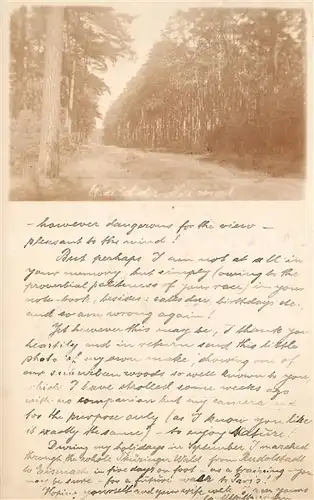 — however dangerous for the view —
pleasant to the mind!
But perhaps I am not at all in
your memory, but simply (owing to the
proverbial politeness of your race) in your
note-book, besides: calendar, birthdays etc.
and so am wrong again!
Yet however this may be, I thank you
heartily and in return send this little
photo of my own make, showing one of
our suburban woods so well known to you,
which I have strolled some weeks ago
with no companion but my camera and
for the purpose only (as I know you like
it exactly the same) — to enjoy Nature!
During my holidays in September I marched
through the whole Thüringer Wald from Rudolstadt
to Eisenach in five days on foot — as a training — you
may be sure — for a future walk to Paris!
Hoping yourself and your wife well I am yours